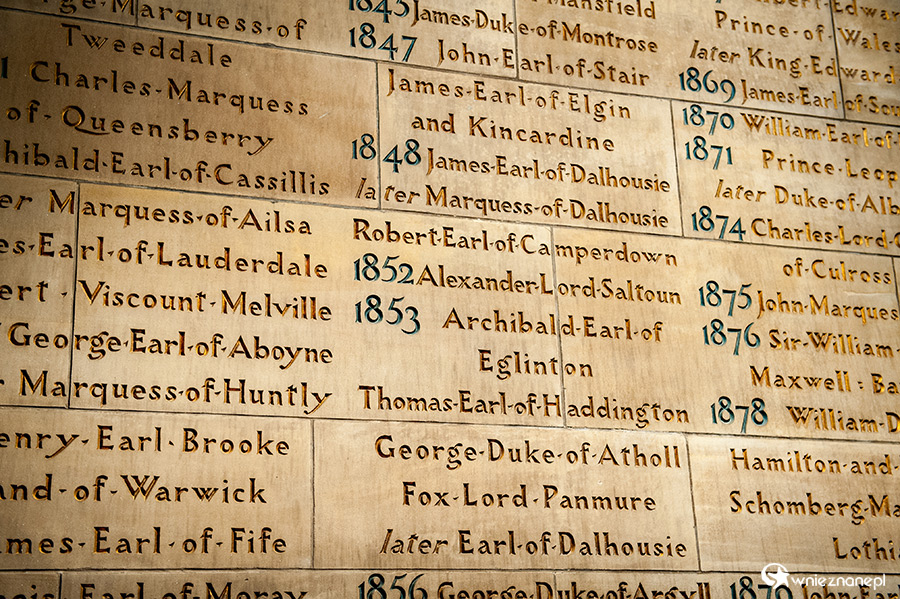 Marquess·of
Tweeddale
Charles·Marquess
of·Queensberry
hibald·Earl·of·Cassillis
er Marquess·of·Ailsa
es·Earl·of·Lauderdale
ert·Viscount·Melville
George·Earl·of·Aboyne
Marquess·of·Huntly
enry·Earl·Brooke
and·of·Warwick
ames·Earl·of·Fife
Earl·of·Moray
1845 James·Duke·of·Montrose
1847 John·Earl·of·Stair
James·Earl·of·Elgin
and Kincardine
1848 James·Earl·of·Dalhousie
later Marquess·of·Dalhousie
Robert·Earl·of·Camperdown
1852 Alexander·Lord·Saltoun
1853 Archibald·Earl·of
Eglinton
Thomas·Earl·of·Haddington
George·Duke·of·Atholl
Fox·Lord·Panmure
later Earl·of·Dalhousie
1856 George·Duke·of·Argyll
Mansfield
Edwar
Prince·of·Wales
later King·Edward
1869 James·Earl·of·Sou
1870 William·Earl·of
1871 Prince·Leop
later Duke·of·Alb
1874 Charles·Lord
of·Culross
1875 John·Marques
1876 Sir·William
Maxwell : Ba
1878 William·D
Hamilton·and
Schomberg·Ma
Lothia
1879 John·Earl
wnieznane.pl